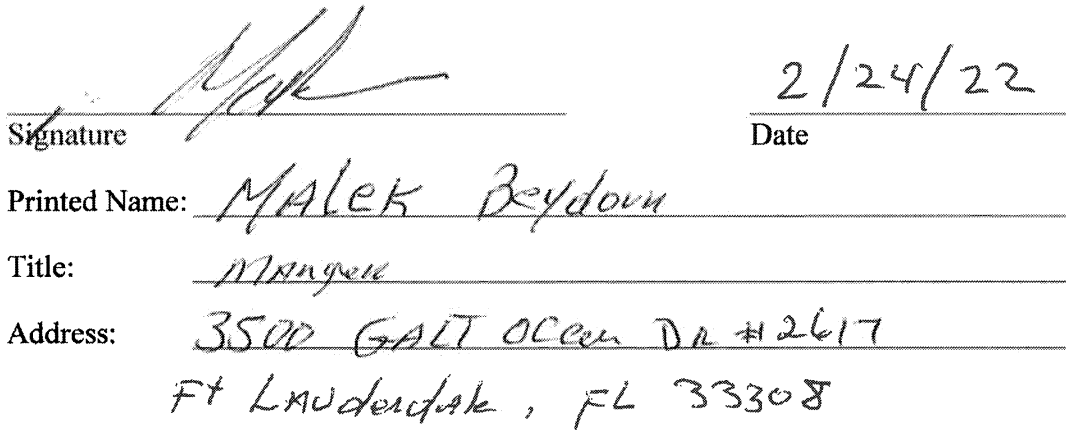 2/24/22
Signature Date
Printed Name: MALEK Beydoun
Title: Manger
Address: 3500 GALT OCean DR #2617
Ft LAUderdale, FL 33308